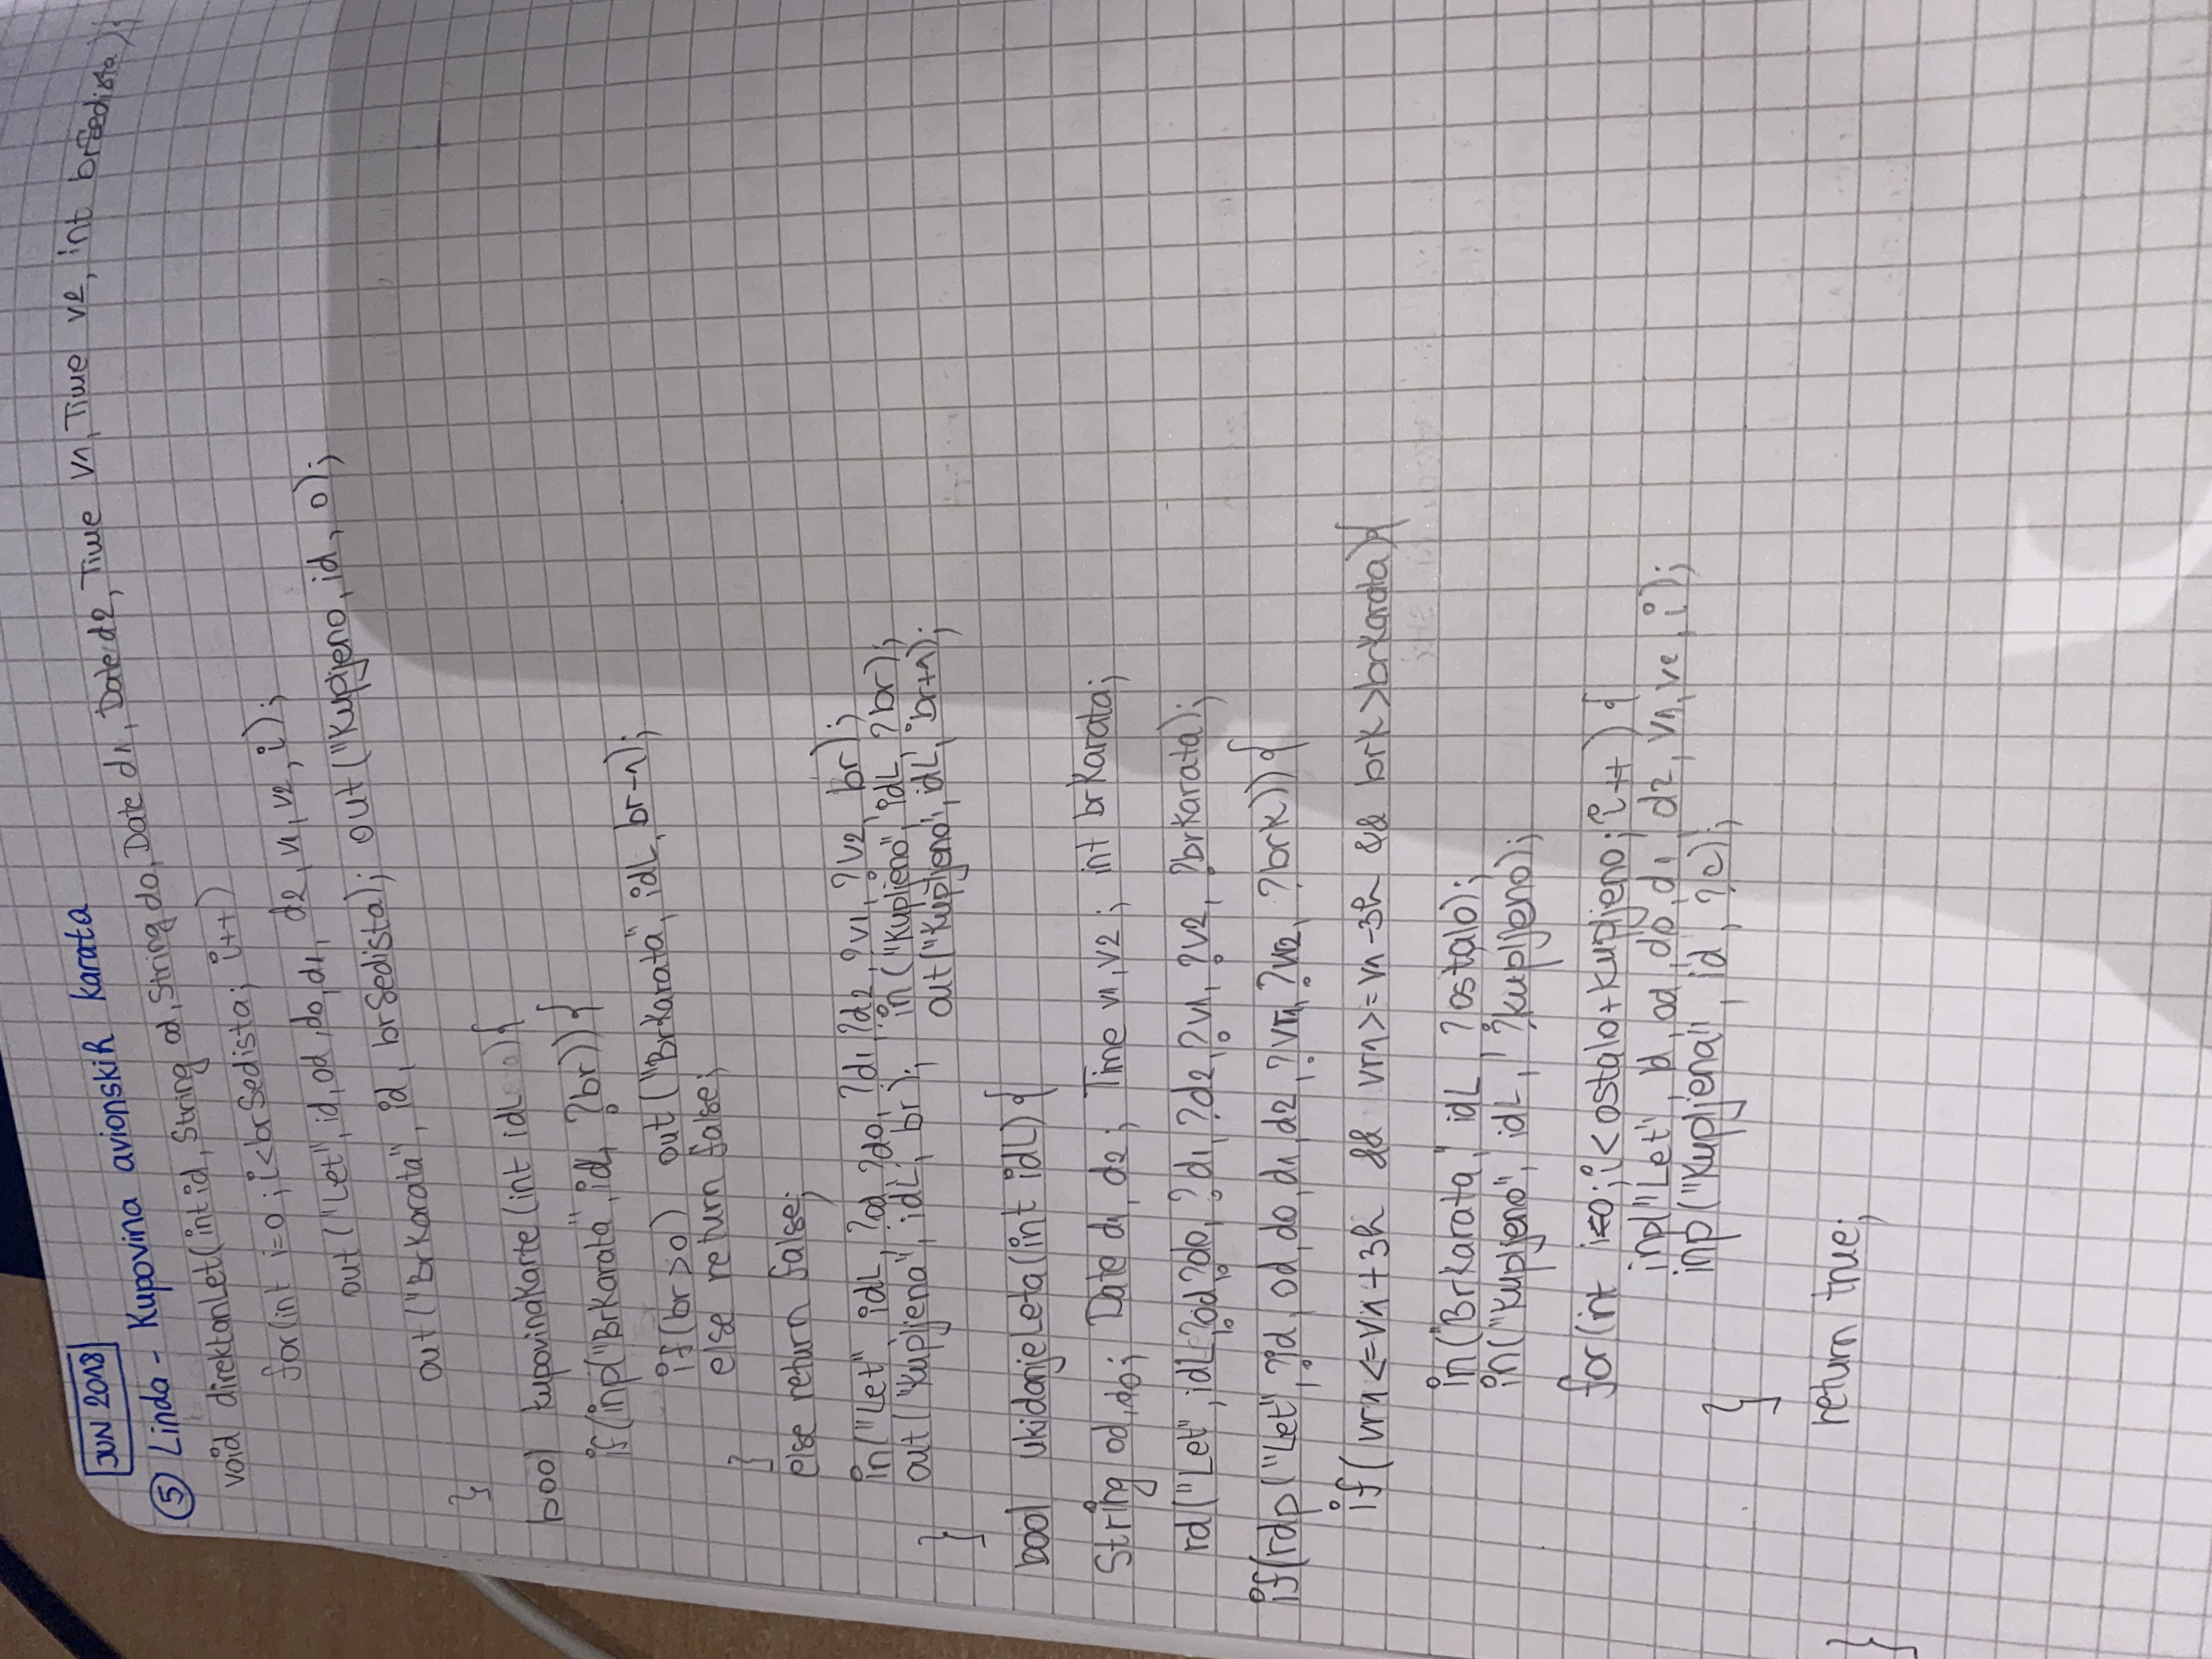 JUN 2018
5 Linda - Kupovina avionskih karata
void direktanLet(int id, String od, String do, Date d1, Date d2, Time v1, Time v2, int brSedista){
for(int i=0; i<brSedista; i++)
out("Let", id, od, do, d1, d2, v1, v2, i);
out("BrKarata", id, brSedista); out("Kupljeno, id, 0);
}
bool kupovinaKarte(int idL){
if(inp("BrKarata", idL, ?br)){
if(br>0) out("BrKarata", idL, br-1);
else return false;
}
else return false;
in("Let", idL, ?od, ?do, ?d1, ?d2, ?v1, ?v2, br);
out("Kupljena", idL, br); in("Kupljeno", idL, ?br);
} out("Kupljeno", idL, br+1);
bool ukidanjeLeta(int idL){
String od, do; Date d1, d2; Time v1, v2; int brKarata;
rd("Let", idL, ?od, ?do, ?d1, ?d2, ?v1, ?v2, ?brKarata);
if(rdp("Let", ?id, od, do, d1, d2, ?vr1, ?vr2, ?brk)){
if(vr1<=v1+3h && vr1>=v1-3h && brk>brKarata){
in("BrKarata," idL, ?ostalo);
in("Kupljeno", idL, ?kupljeno);
for(int i=0; i<ostalo+kupljeno; i++){
inp("Let", id, od, do, d1, d2, v1, v2, i);
inp("Kupljena", id, ?c);
}
return true;
}